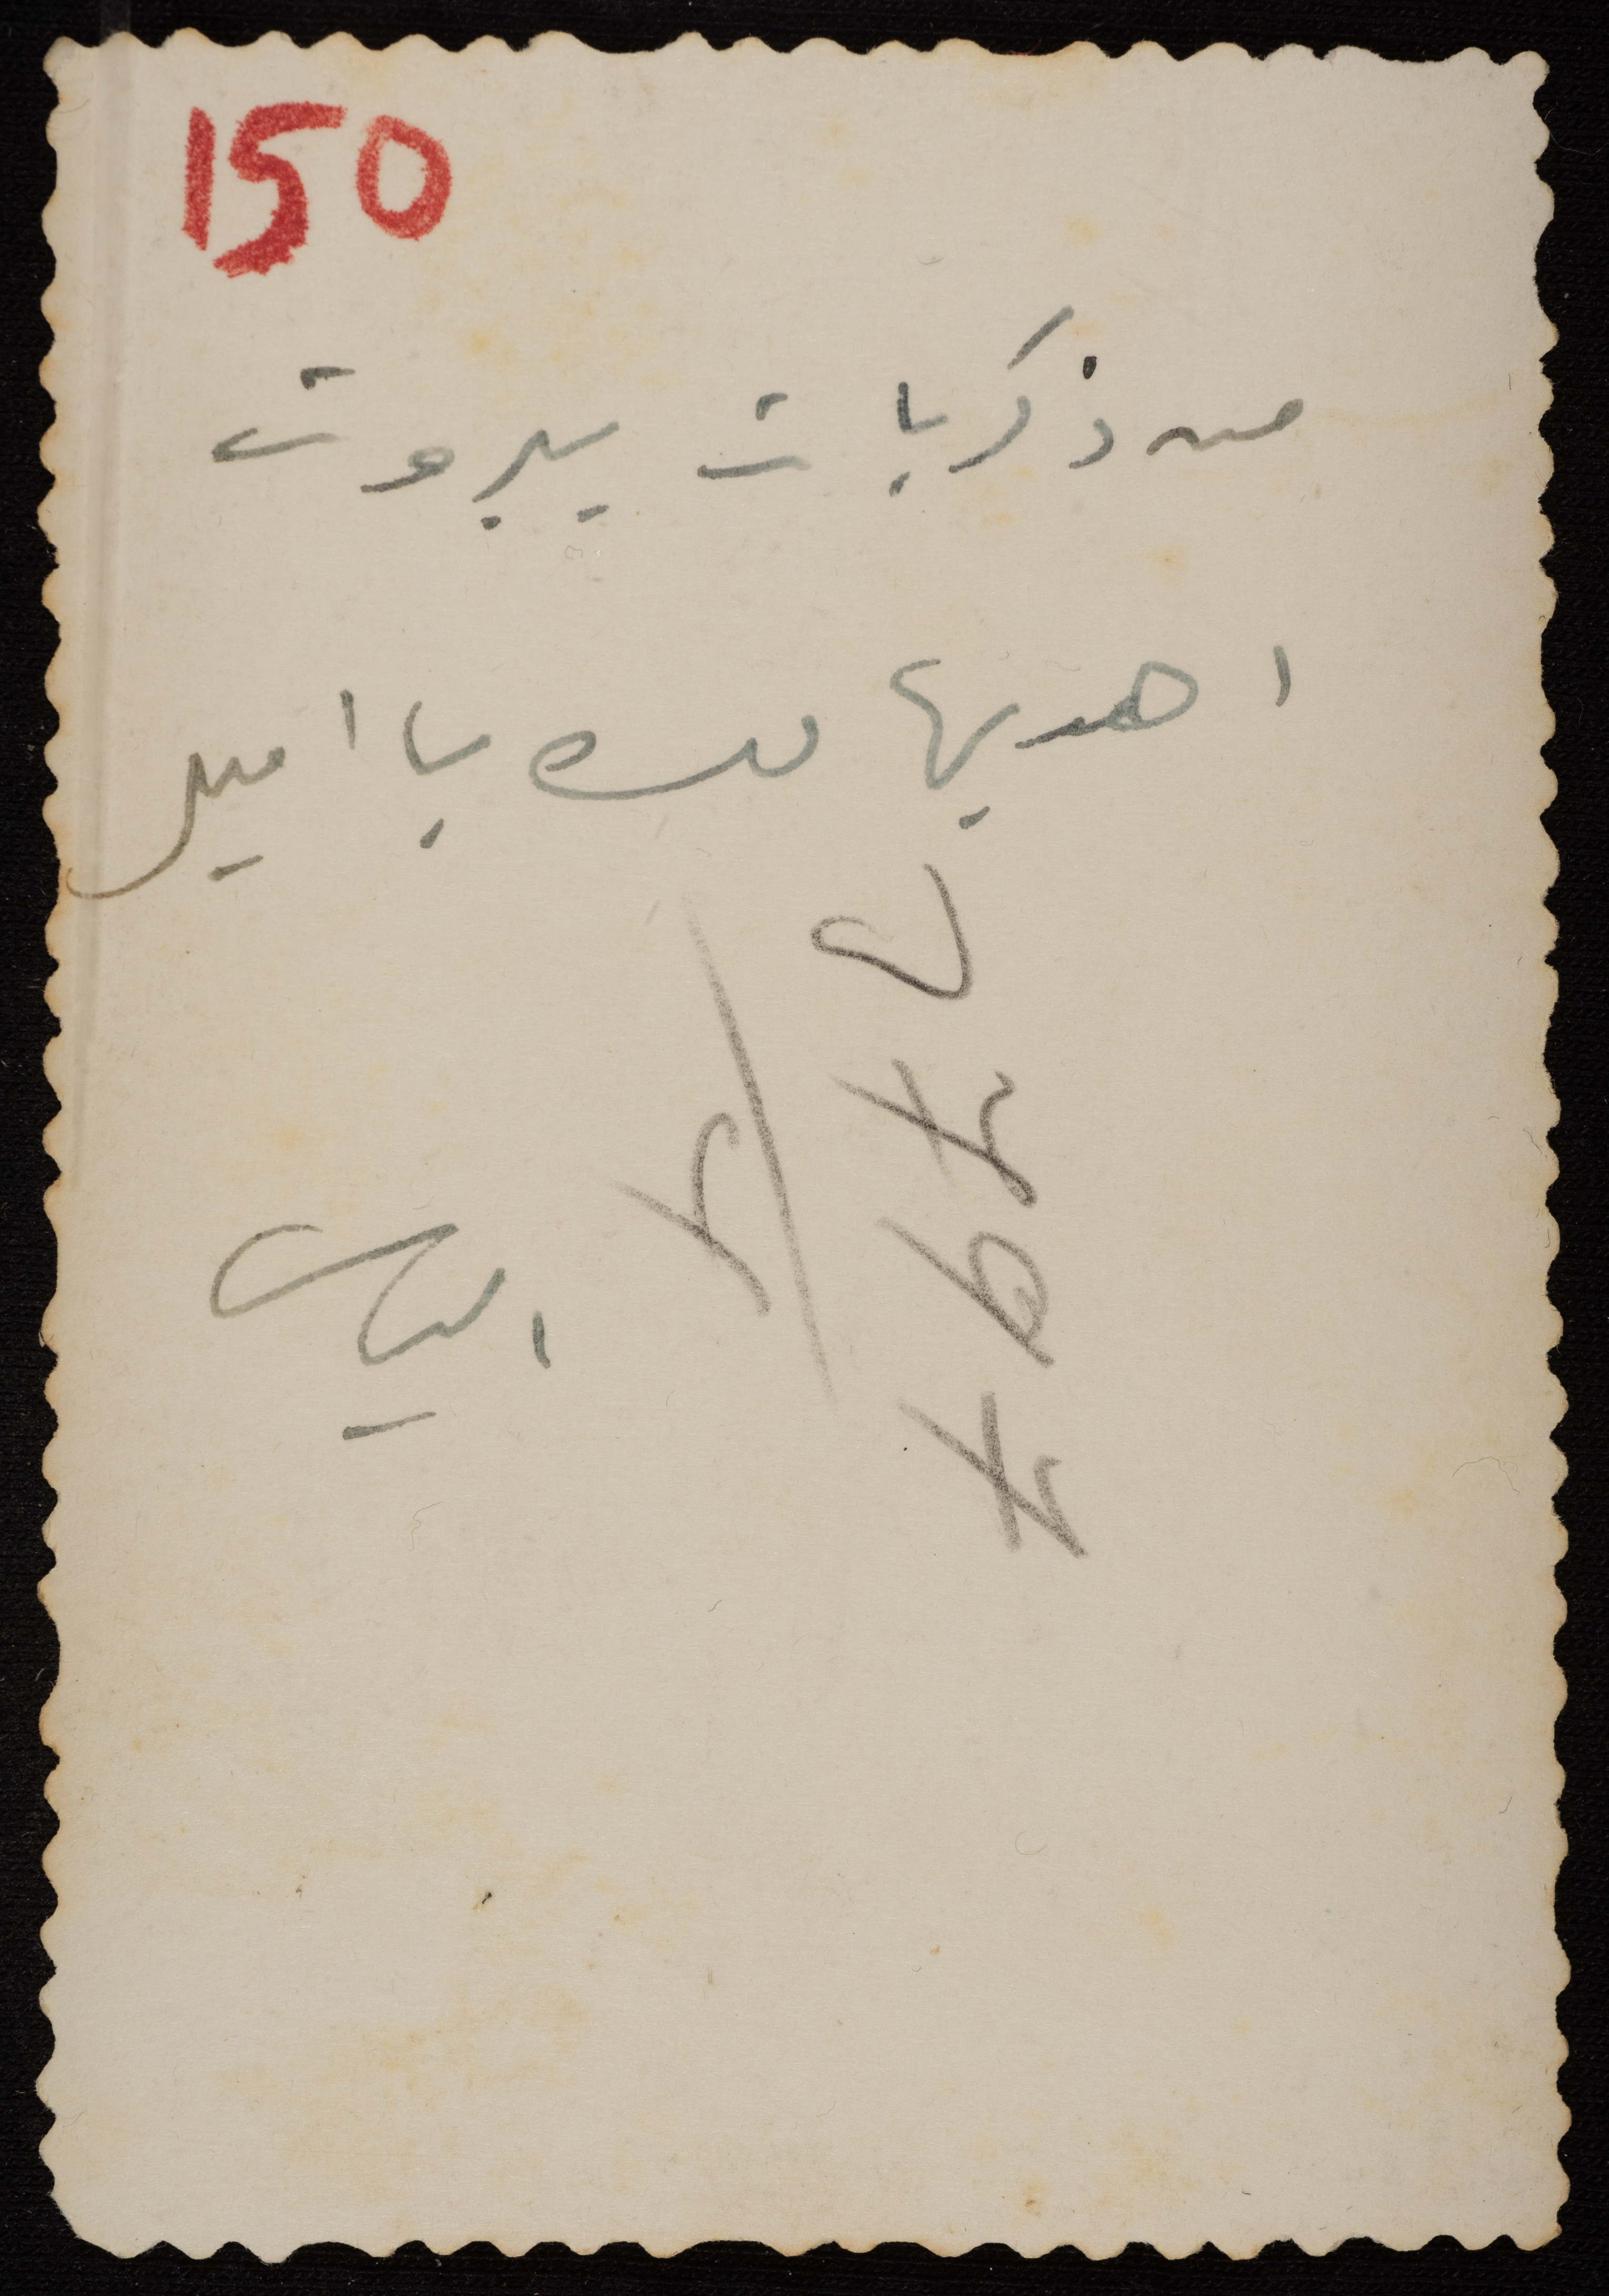 150
من ذكريات بيروت
اهديها لك يا امير
الياس